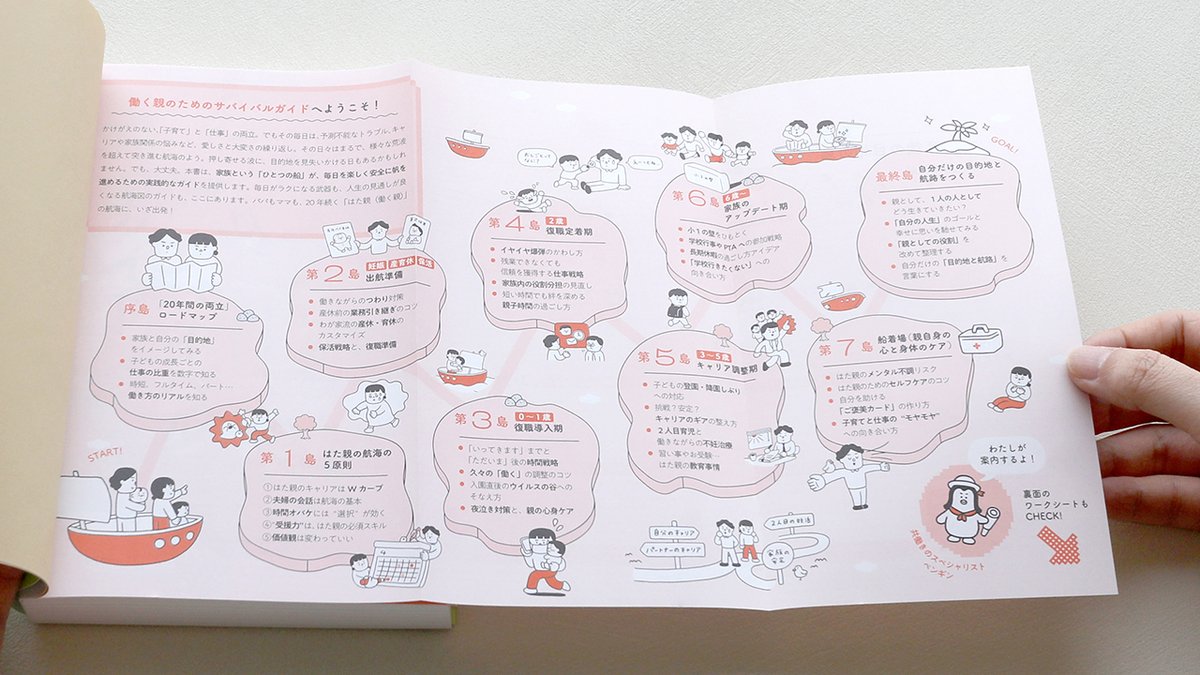 働く親のためのサバイバルガイドへようこそ！
かけがえのない、「子育て」と「仕事」の両立。でもその毎日は、予測不能なトラブル、キャ
リアや家族関係の悩みなど、愛しさと大変さの繰り返し。その日々はまるで、様々な荒波
を超えて突き進む航海のよう。押し寄せる波に、目的地を見失いかける日もあるかもしれ
ません。でも、大丈夫。本書は、家族という「ひとつの船」が、毎日を楽しく安全に帆を
進めるための実践的なガイドを提供します。毎日がラクになる武器も、人生の見通しが良
くなる航海図のガイドも、ここにあります。パパもママも、20年続く「はた親（働く親）」
の航海に、いざ出発！
START!
序島 「20年間の両立」
ロードマップ
家族と自分の「目的地」
をイメージしてみる
子どもの成長ごとの
仕事の比重を数字で知る
時短、フルタイム、パート…
働き方のリアルを知る
第1島 はた親の航海の
5原則
①はた親のキャリアはWカーブ
②夫婦の会話は航海の基本
③時間オバケには“選択”が効く
④“受援力”は、はた親の必須スキル
⑤価値観は変わっていい
第2島 妊娠 産育休 保活
出航準備
働きながらのつわり対策
産休前の業務引き継ぎのコツ
わが家流の産休・育休の
カスタマイズ
保活戦略と、復職準備
第3島 0〜1歳
復職導入期
「いってきます」までと
「ただいま」後の時間戦略
久々の「働く」の調整のコツ
入園直後のウイルスの谷への
そなえ方
夜泣き対策と、親の心身ケア
第4島 2歳
復職定着期
イヤイヤ爆弾のかわし方
残業できなくても
信頼を獲得する仕事戦略
家族内の役割分担の見直し
短い時間でも絆を深める
親子時間の過ごし方
第5島 3〜5歳
キャリア調整期
子どもの登園・降園しぶり
への対応
挑戦？安定？
キャリアのギアの整え方
2人目育児と
働きながらの不妊治療
習い事やお受験…
はた親の教育事情
自分のキャリア
パートナーのキャリア
2人目の妊活
家族の
安定
第6島 6歳〜
家族の
アップデート期
小1の壁をひもとく
学校行事やPTAへの参加戦略
長期休暇の過ごし方アイデア
「学校行きたくない」への
向き合い方
第7島 船着場（親自身の
心と身体のケア）
はた親のメンタル不調リスク
はた親のためのセルフケアのコツ
自分を助ける
「ご褒美カード」の作り方
子育てと仕事の“モヤモヤ”
への向き合い方
GOAL!
最終島 自分だけの目的地と
航路をつくる
親として、1人の人として
どう生きていきたい？
「自分の人生」のゴールと
幸せに思いを馳せてみる
「親としての役割」を
改めて整理する
自分だけの「目的地と航路」を
言葉にする
わたしが
案内するよ！
共働きのスペシャリスト
裏面の
ワークシートも
CHECK!